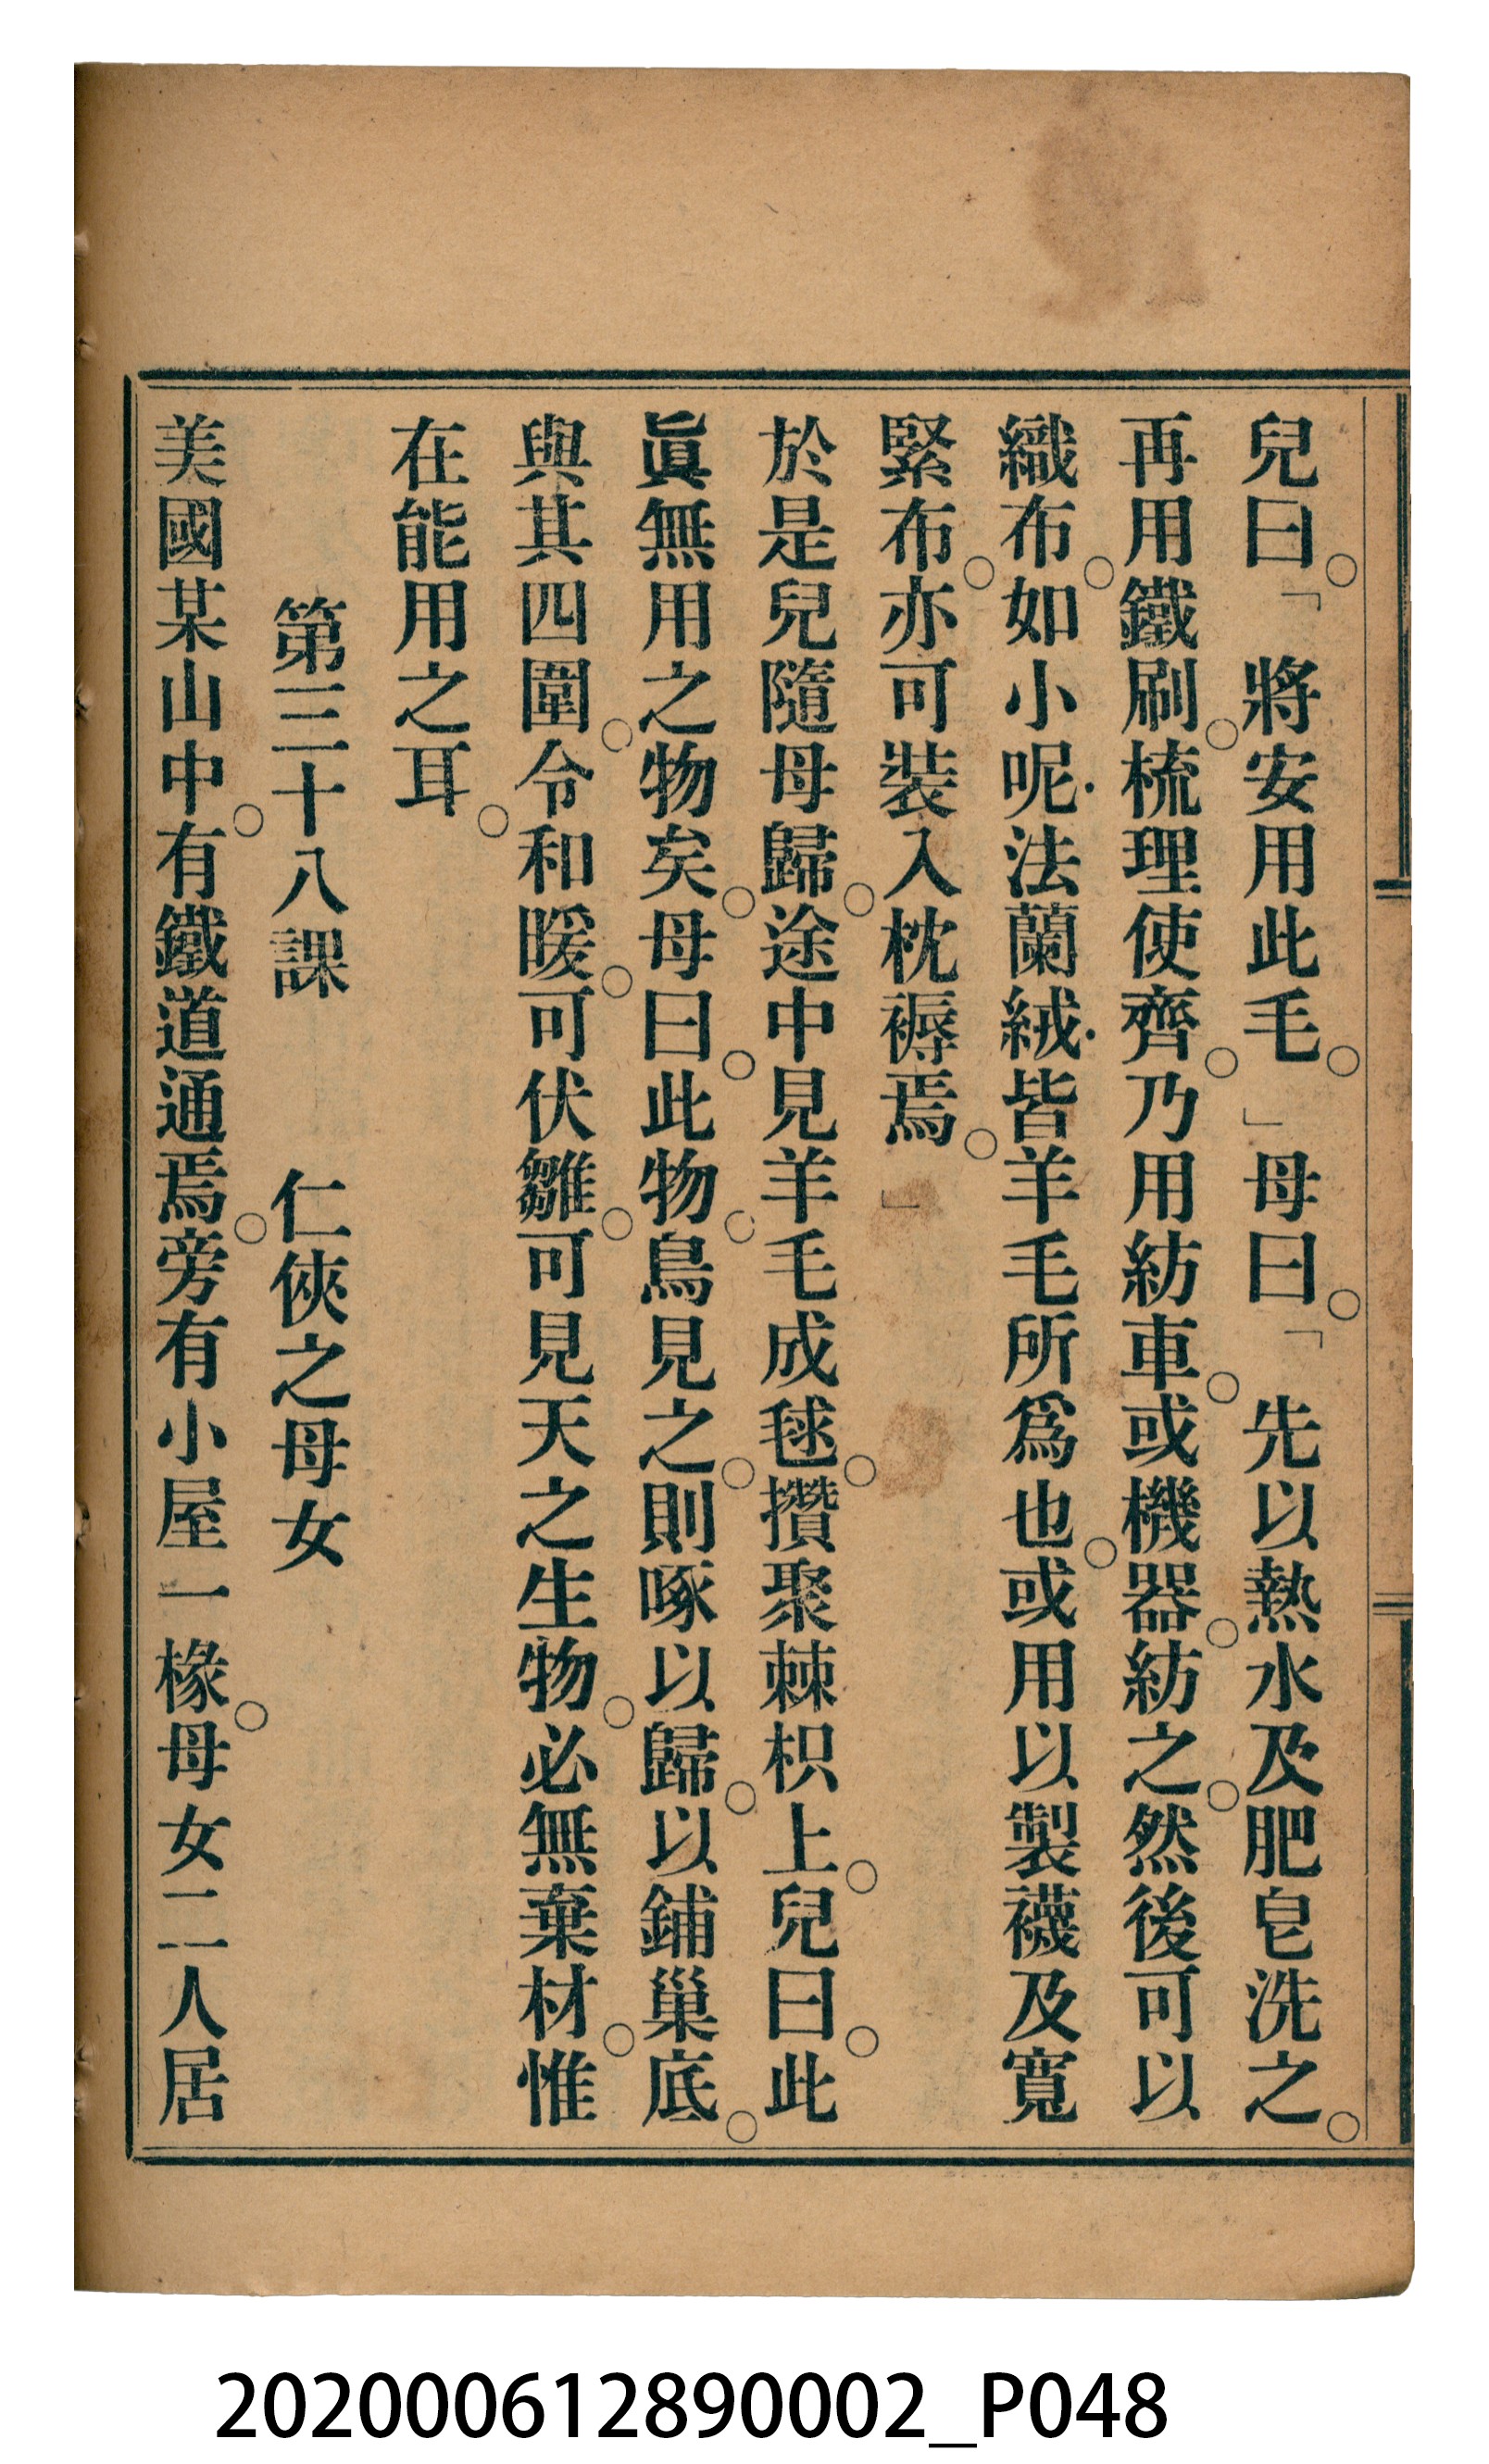 兒曰○「將安用此毛○」母曰○「先以熱水及肥皂洗之○
再用鐵刷○梳理使齊○乃用紡車○或機器○紡之○然後可以
織布○如小呢·法蘭絨·皆羊毛所爲也○或用以製襪及寬
緊布○亦可裝入枕褥焉○」
於是兒隨母歸○途中見羊毛成毬○攢聚棘枳上○兒曰○此
眞無用之物矣○母曰○此物○鳥見之○則啄以歸○以鋪巢底○
與其四圍○令和暖○可伏雛○可見天之生物○必無棄材○惟
在能用之耳○
第三十八課　仁俠之母女
美國某山中○有鐵道通焉○旁有小屋一椽○母女二人居
202000612890002_P048